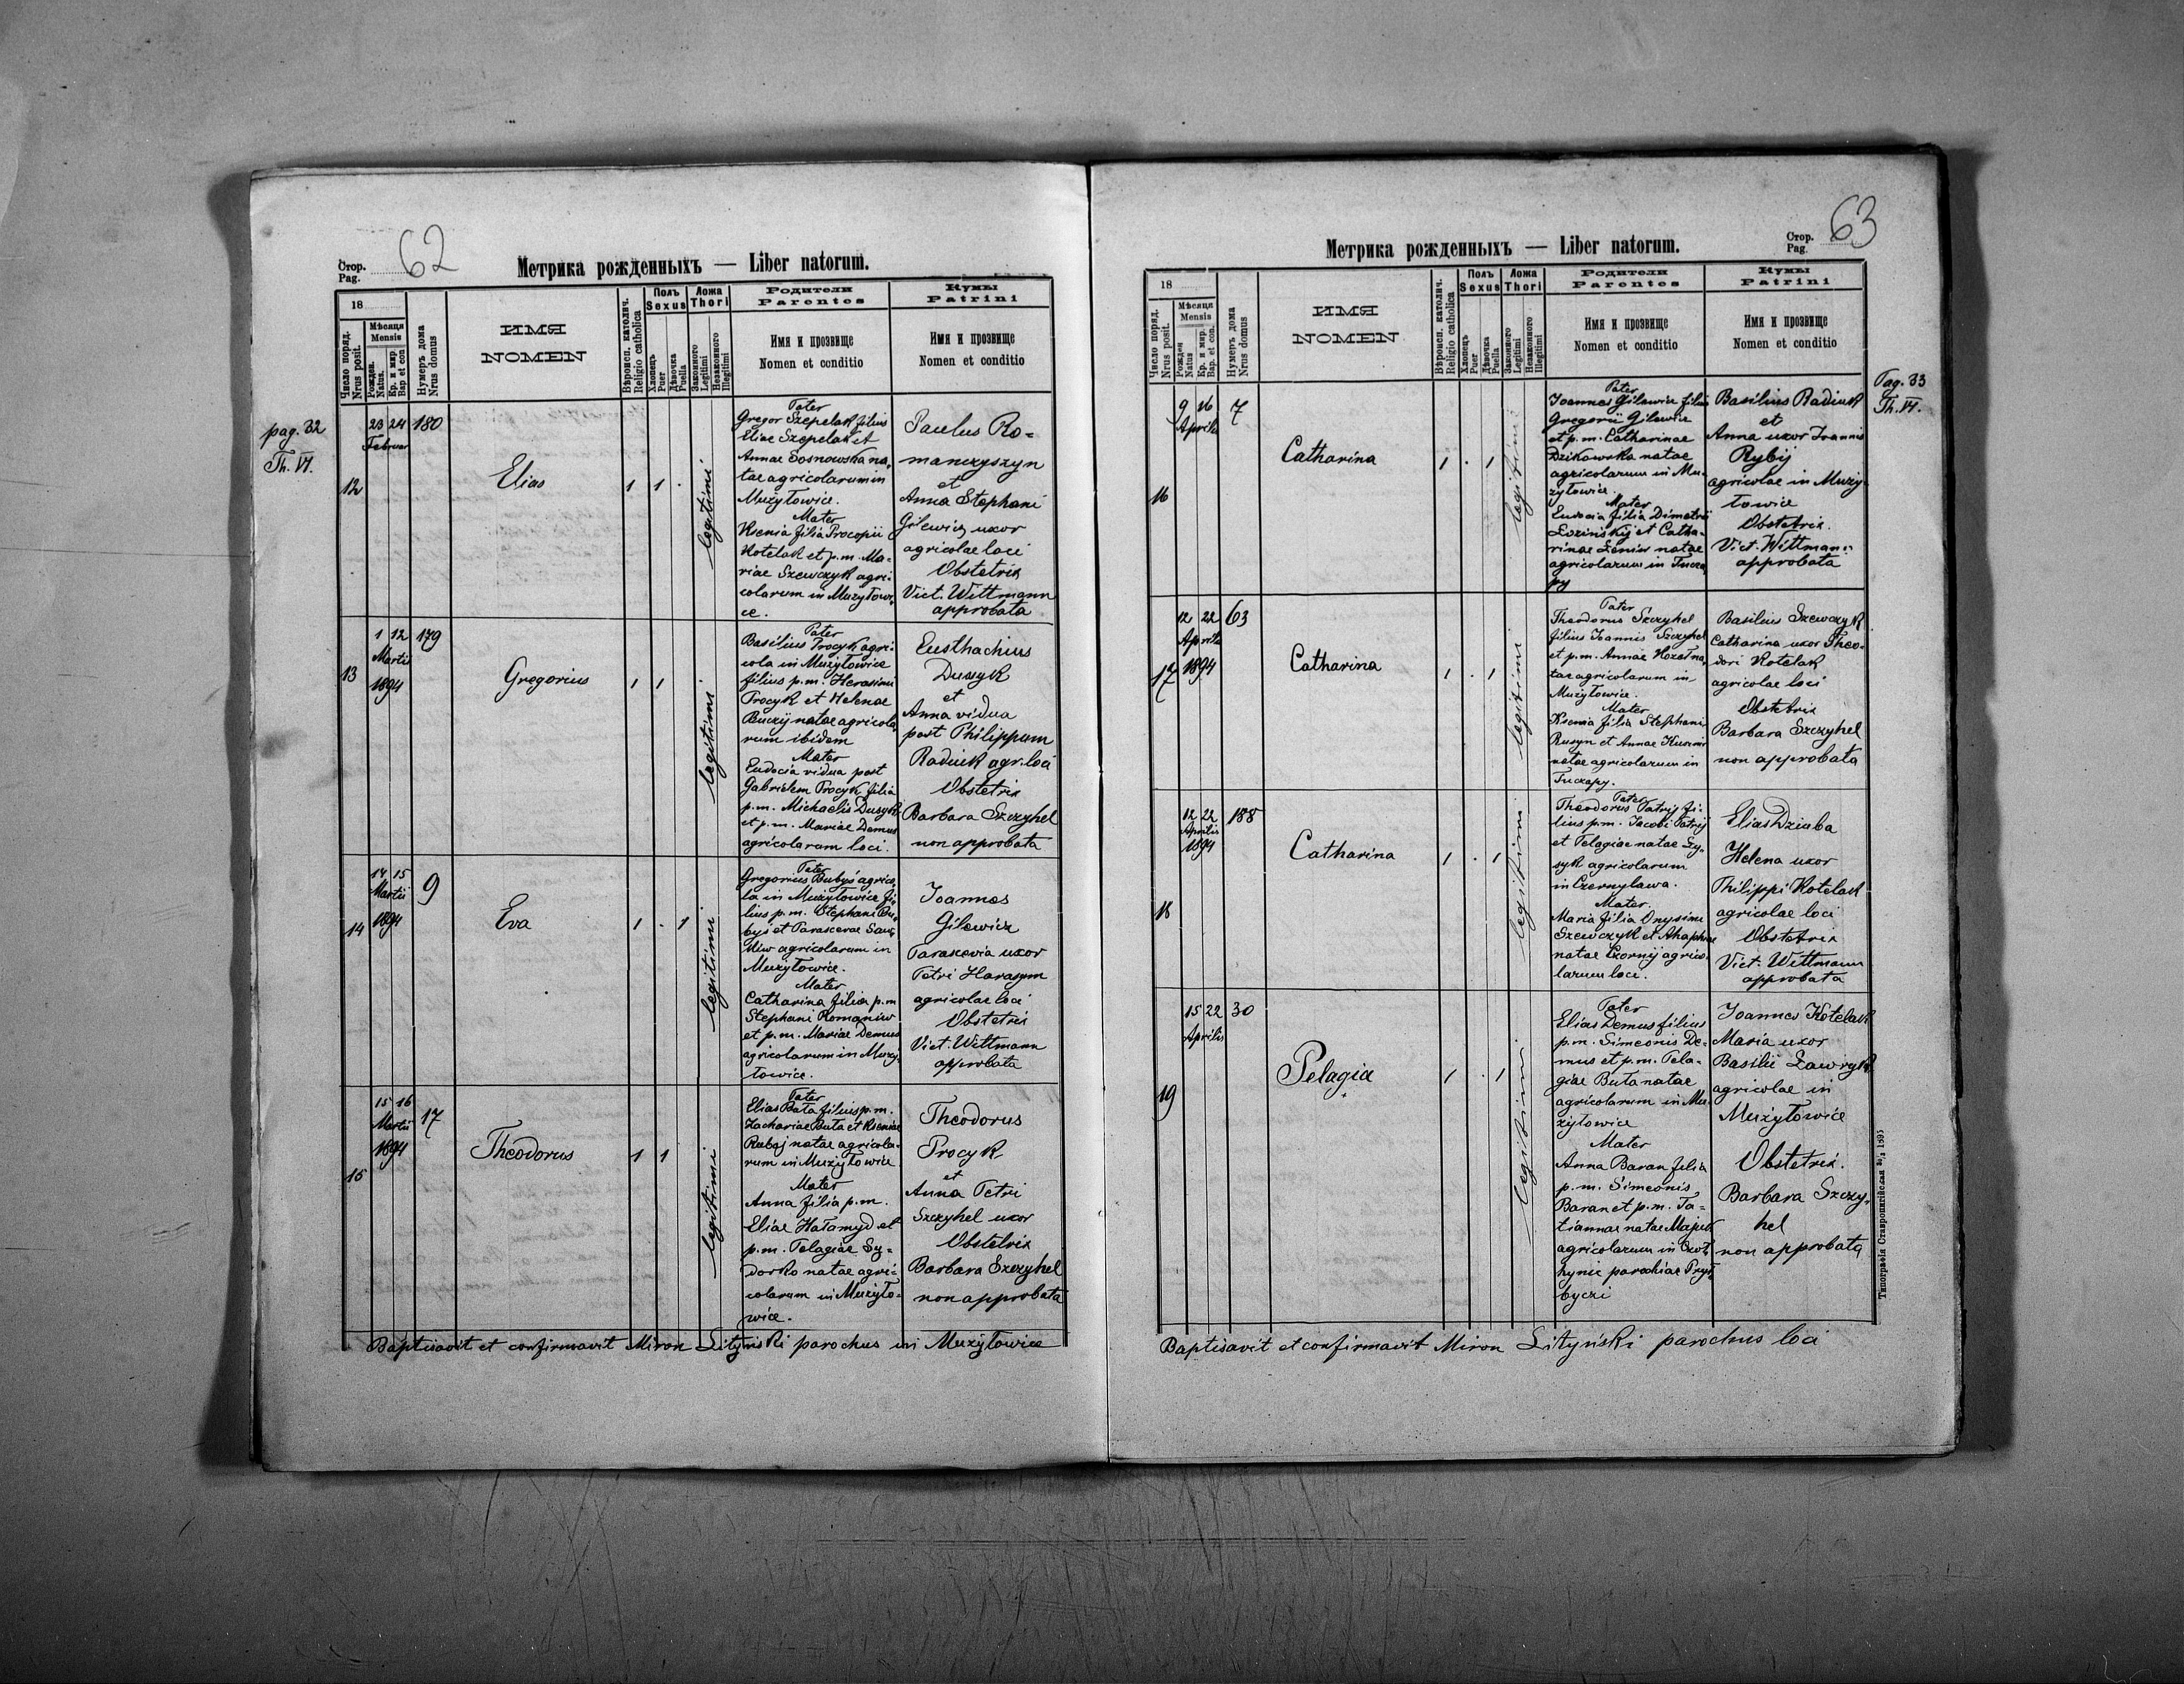 Стор.
Pag.
62
Метрика рожденныхъ — Liber natorum.
18
Число поряд.
Nrus posit.
Мѣсяця
Mensis
Рожден.
Natus.
Кр. и мир.
Bap et con
Нумеръ дома
Nrus domus
ИМЯ
NOMEN
Вѣроисп. католич.
Religio catholica
Полъ
Sexus
Хлопецъ
Puer
Дѣвочка
Puella
Ложа
Thori
Законного
Legitimi
Незаконного
Illegitimi
Родители
Parentes
Имя и прозвище
Nomen et conditio
Кумы
Patrini
Имя и прозвище
Nomen et conditio
pag. 32
Th. VI.
12
23 24
Februar
180
Elias
1 1 .
legitimi
Pater
Gregor Szepelak filius
Eliae Szepelak et
Annae Sosnowska na-
tae agricolarum in
Mużyłowice.
Mater
Ksenia filia Procopii
Kotelak et p.m. Ma-
riae Szewczyk agri-
colarum in Mużyłowi-
ce.
Paulus Ro-
manczyszyn
et
Anna Stephani
Gilewicz uxor
agricolae loci
Obstetrix
Vict. Wittmann
approbata
13
1 12
Martii
1894
179
Gregorius
1 1
legitimi
Pater
Basilius Procyk agri-
cola in Mużyłowice
filius p.m. Herasimi
Procyk et Helenae
Buczij natae agricola-
rum ibidem
Mater
Eudocia vidua post
Gabrielem Procyk filia
p.m. Michaelis Dusyk
et p.m. Mariae Demus
agricolarum loci.
Eusthachius
Dusyk
et
Anna vidua
post Philippum
Raduik agr. loci
Obstetrix
Barbara Szczyhel
non approbata
14
14 15
Martii
1894
9
Eva
1 . 1
legitimi
Pater
Gregorius Bubyś agrico-
la in Mużyłowice fi-
lius p.m. Stephani Bu-
byś et Parascevae
agricolarum in
Mużyłowice.
Mater
Catharina filia p.m
Stephani Romaniw
et p.m. Mariae Demus
agricolarum in Muży-
łowice.
Joannes
Gilewicz
Parascevia uxor
Petri Harasym
agricolae loci
Obstetrix
Vict. Wittmann
approbata
15
15 16
Martii
1894
17
Theodorus
1 1
legitimi
Pater
Elias Buta filius p.m.
Zachariae Buta et Kseniae
Rubaj natae agricola-
rum in Mużyłowice
Mater
Anna filia p.m.
Eliae Hałamyd et
p.m. Pelagiae Sy-
dorko natae agri-
colarum in Mużyło-
wice.
Theodorus
Procyk
et
Anna Petri
Szczyhel uxor
Obstetrix
Barbara Szczyhel
non approbata
Baptisavit et confirmavit Miron Lityński parochus in Mużyłowice
Метрика рожденныхъ — Liber natorum.
Стор.
Pag.
63
18
Число поряд.
Nrus posit.
Мѣсяця
Mensis
Рожден
Natus
Кр. и мир.
Bap. et con.
Нумеръ дома
Nrus domus
ИМЯ
NOMEN
Вѣроисп. католич.
Religio catholica
Полъ
Sexus
Хлопецъ
Puer
Дѣвочка
Puella
Ложа
Thori
Законного
Legitimi
Незаконного
Illegitimi
Родители
Parentes
Имя и прозвище
Nomen et conditio
Кумы
Patrini
Имя и прозвище
Nomen et conditio
Pag. 33
Th. VI.
16
9 16
Aprilis
7
Catharina
1 . 1
legitimi
Pater
Joannes Gilewicz filius
Gregorii Gilewicz
et p.m. Catharinae
Dzikowska natae
agricolarum in Mu-
żyłowice.
Mater
Eudocia filia Dimetrii
Łozinskij et Catha-
rinae natae
agricolarum in Tucza-
py
Basilius Raduik
et
Anna uxor Joannis
Rybij
agricolae in Muży-
łowice
Obstetrix.
Vict. Wittmann
approbata
17
12 22
Aprilis
1894
63
Catharina
1 . 1
legitimi
Pater
Theodorus Szczyhel
filius Joannis Szczyhel
et p.m. Annae na-
tae agricolarum in
Mużyłowice.
Mater
Ksenia filia Stephani
Rusyn et Annae
natae agricolarum in
Tuczapy.
Basilius Szewczyk
Catharina uxor Theo-
dori Kotelak
agricolae loci
Obstetrix
Barbara Szczyhel
non approbata
18
12 22
Aprilis
1894
188
Catharina
1 . 1
legitimi
Pater
Theodorus Patrij fi-
lius p.m. Jacobi Patrij
et Pelagiae natae Ły-
syk agricolarum
in Czernylawa.
Mater.
Maria filia Onysimi
Szewczyk et Ahaphiae
natae Czornij agrico-
larum loci.
Elias Dziuba
Helena uxor
Philippi Kotelak
agricolae loci
Obstetrix
Vict. Wittmann
approbata
19
15 22
Aprilis
30
Pelagia
1 . 1
legitimi
Pater
Elias Demus filius
p.m. Simeonis De-
mus et p.m. Pela-
giae Buta natae
agricolarum in Mu-
żyłowice
Mater
Anna Baran filia
p.m. Simeonis
Baran et p.m. Ta-
tiannae natae
agricolarum in
parochiae Pryl-
byczi
Joannes Kotelak
Maria uxor
Basilii Ławryk
agricolae in
Mużyłowice
Obstetrix.
Barbara Szczy-
hel
non approbata
Baptisavit et confirmavit Miron Lityński parochus loci
Типографія Ставропигійская 1895